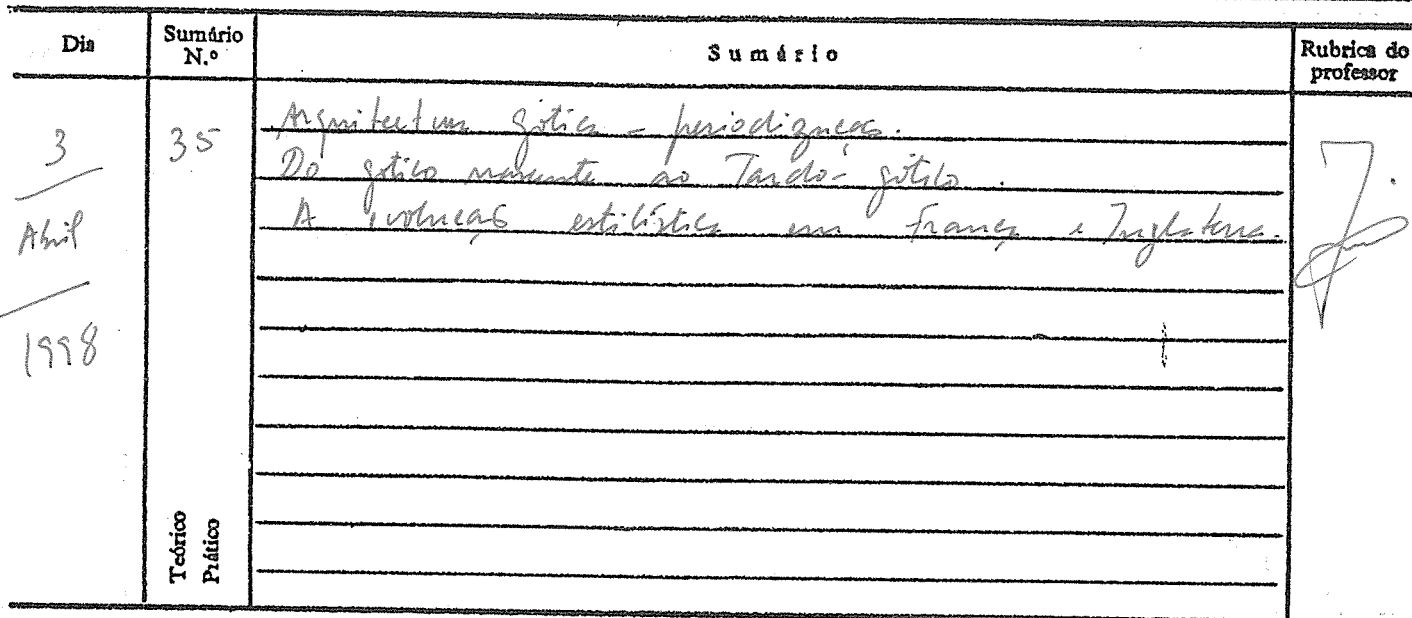 Dia
Sumário N.º
Sumário
Rubrica do professor
3
Abril
1998
35
Arquitectura gótica - periodização.
Do gótico nascente ao Tardo-gótico.
A evolução estilística em França e Inglaterra.
Teórico
Prático